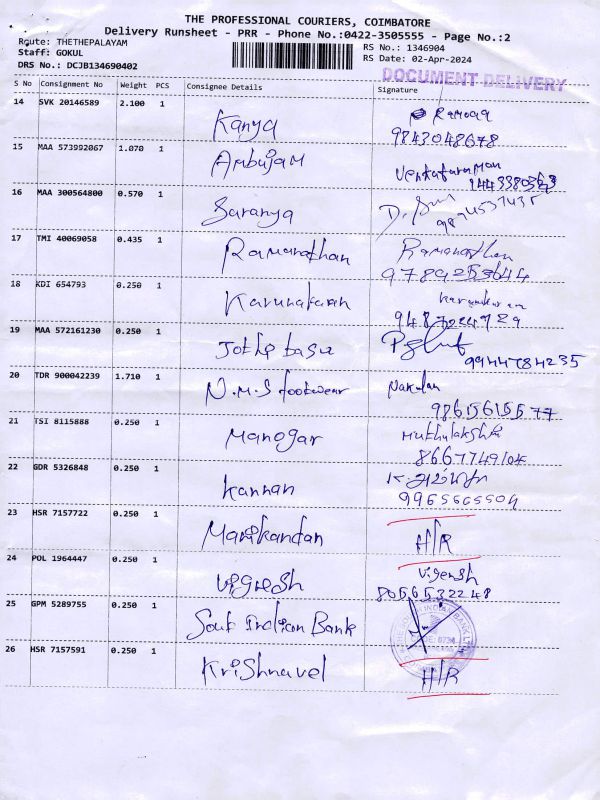 THE PROFESSIONAL COURIERS, COIMBATORE
Delivery Runsheet - PRR - Phone No.:0422-3505555 - Page No.:2
Route: THETHEPALAYAM
Staff: GOKUL
DRS No.: DCJB134690402
RS No.: 1346904
RS Date: 02-Apr-2024
DOCUMENT DELIVERY
S No Consignment No Weight PCS Consignee Details Signature
14 SVK 20146589 2.100 1 Kanya
9843048678
15 MAA 573992067 1.070 1 Ambujam Venkataraman
16 MAA 300564800 0.570 1 Saranya
17 TMI 40069058 0.435 1 Ramanathan Ramanathan
9789253644
18 KDI 654793 0.250 1 Karunakaran
19 MAA 572161230 0.250 1 Jothe basu
9944784235
20 TDR 900042239 1.710 1 N.M.S footwear Nakulan
9865615577
21 TSI 8115888 0.250 1 Manogar Muthulakshmi
8667749104
22 GDR 5326848 0.250 1 Kannan
9965665504
23 HSR 7157722 0.250 1 Manikandan H/R
24 POL 1964447 0.250 1 Vignesh Vigensh
8056532248
25 GPM 5289755 0.250 1 South Indian Bank
26 HSR 7157591 0.250 1 Krishnavel H/R